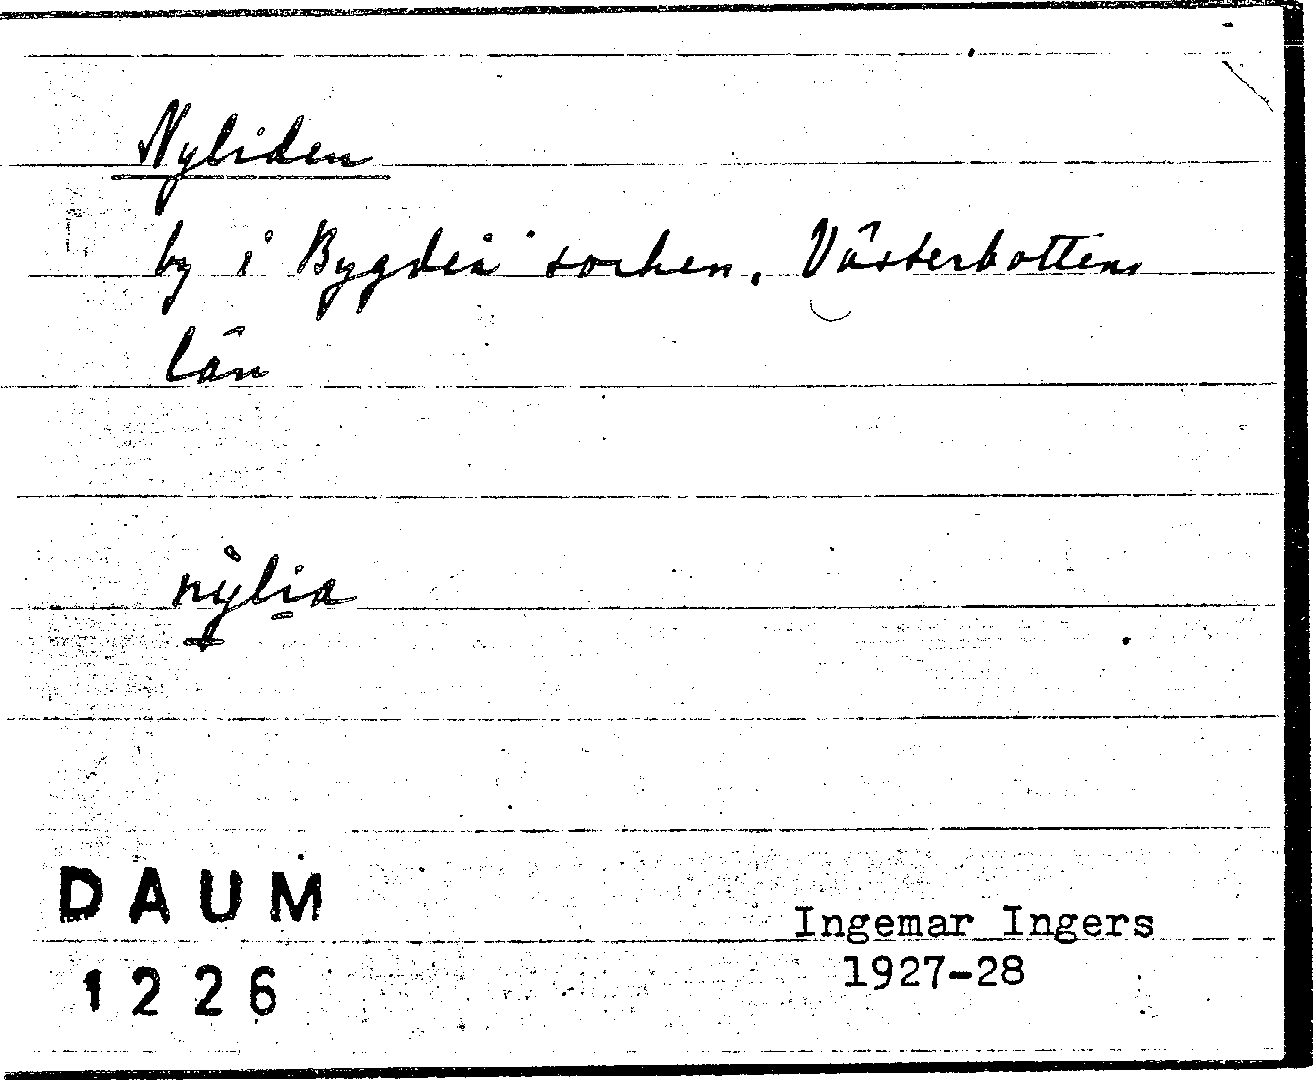 Nyliden
by i Bygdeå socken, Västerbottens
län
nýlia
DAUM
1226
Ingemar Ingers
1927-28